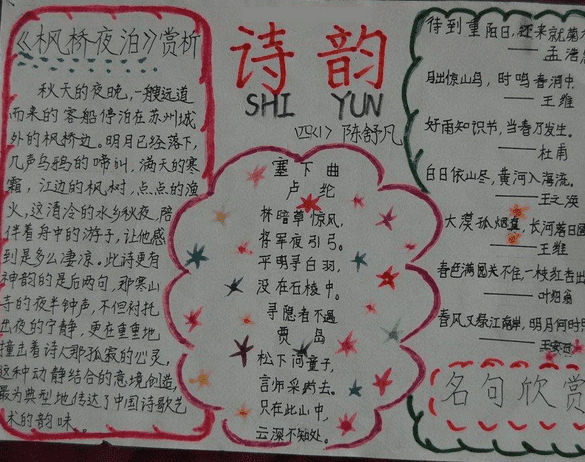 《枫桥夜泊》赏析
秋天的夜晚，一艘远道
而来的客船停泊在苏州城
外的枫桥边。明月已经落下，
几声乌鸦的啼叫，满天的寒
霜，江边的枫树，点点的渔
火，这清冷的水乡秋夜，陪
伴着舟中的游子，让他感
到是多么凄凉。此诗更有
神韵的是后两句，那寒山
寺的夜半钟声，不但衬托
出夜的宁静，更在重重地
撞击着诗人那孤寂的心灵，
这种动静结合的意境创造，
最为典型地传达了中国诗歌艺
术的韵味。
诗韵
SHI YUN
四(1) 陈舒凡
塞下曲
卢纶
林暗草惊风，
将军夜引弓。
平明寻白羽，
没在石棱中。
寻隐者不遇
贾岛
松下问童子，
言师采药去。
只在此山中，
云深不知处。
待到重阳日，还来就菊
——孟浩
月出惊山鸟，时鸣春涧中。
——王维
好雨知时节，当春乃发生。
——杜甫
白日依山尽，黄河入海流。
——王之涣
大漠孤烟直，长河落日圆
——王维
春色满园关不住，一枝红杏出
——叶绍翁
春风又绿江南岸，明月何时
——王安石
名句欣赏